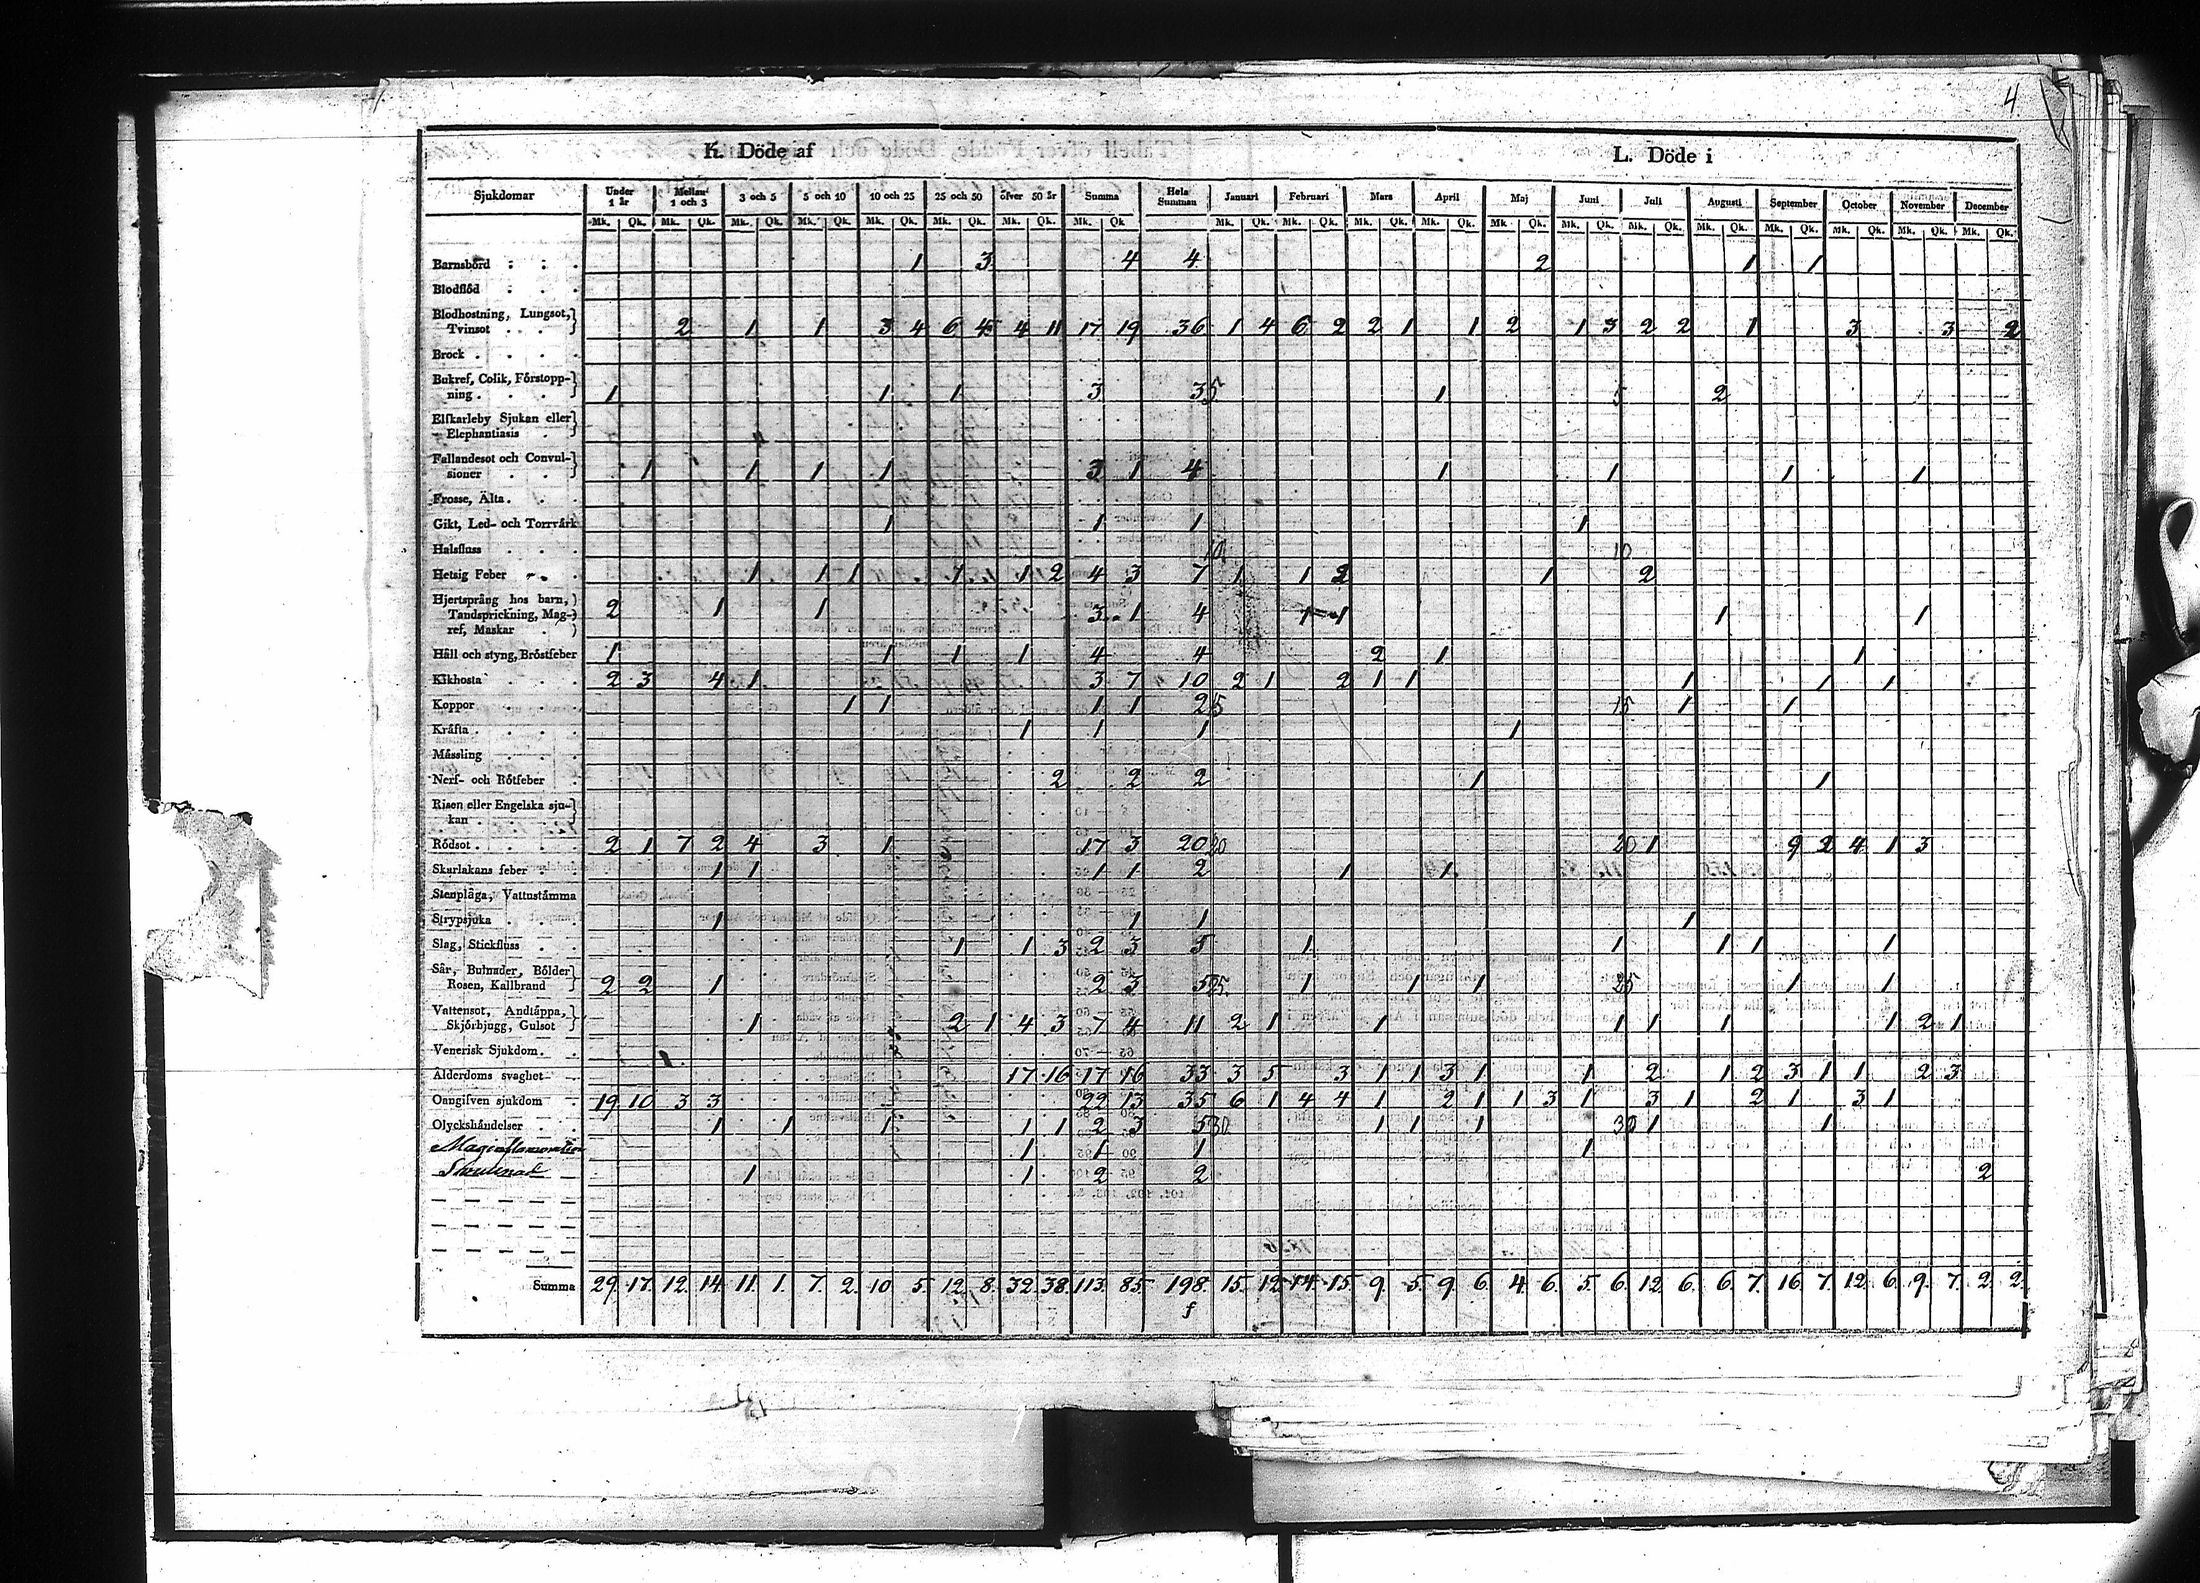 4
K. Döde af L. Döde i
Sjukdomar Under 1 år Mellan 1 och 3 3 och 5 5 och 10 10 och 25 25 och 50 öfver 50 år Summa Hela Summan Januari Februari Mars April Maj Juni Juli Augusti September October November December
Mk. Qk. Mk. Qk. Mk. Qk. Mk. Qk. Mk. Qk. Mk. Qk. Mk. Qk. Mk. Qk Mk. Qk. Mk. Qk. Mk. Qk. Mk. Qk. Mk. Qk. Mk. Qk. Mk. Qk. Mk. Qk. Mk. Qk. Mk. Qk. Mk. Qk. Mk. Qk.
Barnsbörd 1 3 4 4 2 1 1
Blodflöd
Blodhostning, Lungsot,
Tvinsot 2 1 1 3 4 6 4 4 11 17 19 36 1 4 6 2 2 1 1 2 1 3 2 2 1 3 3 2
Brock
Bukref, Colik, Förstopp-
ning 1 1 1 3 3 5 1 5 2
Elfkarleby Sjukan eller
Elephantiasis
Fallandesot och Convul-
sioner 1 1 1 1 3 1 4 1 1 1 1
Frosse, Älta
Gikt, Led- och Torrvärk 1 1 1 1
Halsfluss 10 10
Hetsig Feber 1 1 1 1 1 2 4 3 7 1 1 2 1 2
Hjertsprång hos barn,
Tandsprickning, Mag-
ref, Maskar 2 1 1 3 1 4 1 1 1 1
Håll och styng, Bröstfeber 1 1 1 1 4 4 2 1 1
Kikhosta 2 3 4 1 3 7 10 2 1 2 1 1 1 1 1
Koppor 1 1 1 1 2 15 15 1 1
Kräfta 1 1 1 1
Mässling
Nerf- och Rötfeber 2 2 2 1 1
Risen eller Engelska sju-
kan
Rödsot 2 1 7 2 4 3 1 17 3 20 20 20 1 9 2 4 1 3
Skarlakans feber 1 1 1 1 2 1 1
Stenplåga, Vattustämma
Strypsjuka 1 1 1 1
Slag, Stickfluss 1 1 3 2 3 5 1 1 1 1 1
Sår, Bulnader, Bölder
Rosen, Kallbrand 2 2 1 2 3 5 25 1 1 1 25 1 1
Vattensot, Andtäppa,
Skjörbjugg, Gulsot 1 2 1 4 3 7 4 11 2 1 1 1 1 1 1 2 1
Venerisk Sjukdom
Ålderdoms svaghet 17 16 17 16 33 3 5 3 1 1 3 1 1 2 1 2 3 1 1 2 3
Oangifven sjukdom 19 10 3 3 22 13 35 6 1 4 4 1 2 1 1 3 1 3 1 2 1 3 1
Olyckshändelser 1 1 1 1 1 2 3 5 30 1 1 1 30 1 1
1 1 1 1
1 1 2 2 2
Summa 29. 17. 12. 14. 11. 1. 7. 2. 10 5. 12. 8. 32. 38. 113. 85. 198. 15. 12. 14. 15. 9. 5. 9. 6. 4. 6. 5. 6. 12. 6. 6. 7. 16. 7. 12. 6. 9. 7. 2. 2.